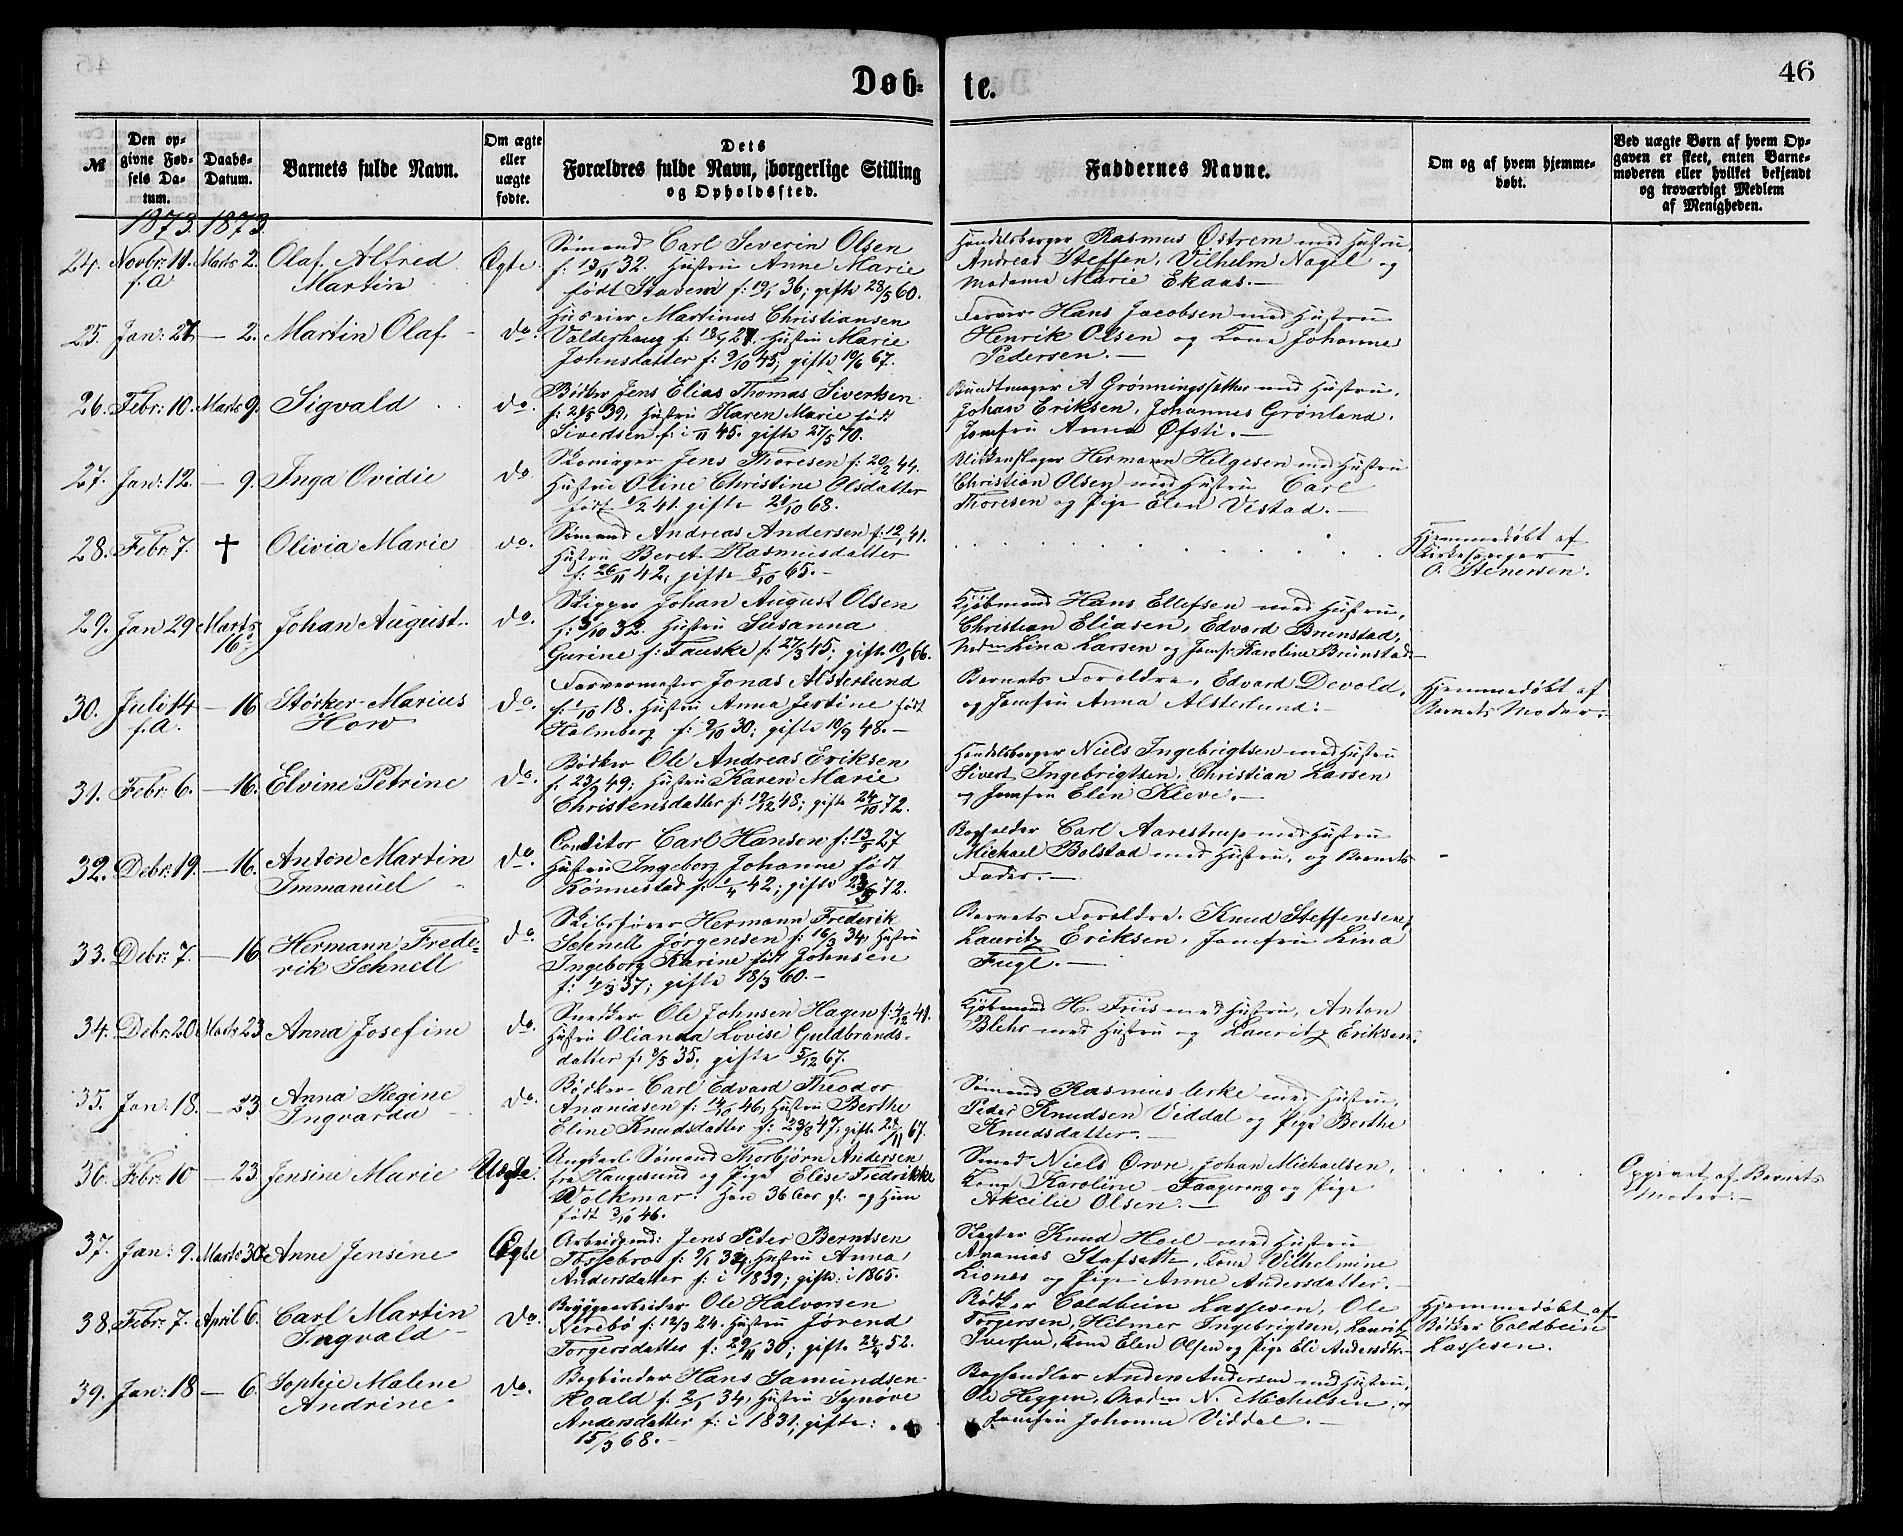 46
Døb- te.
№
Den opgivne Fødsels Datum.
Daabs-Datum.
Barnets fulde Navn.
Om ægte eller uægte fødte.
Dets Forældres fulde Navn, borgerlige Stilling og Opholdssted.
Faddernes Navne.
Om og af hvem hjemmedøbt.
Ved uægte Børn af hvem Opgaven er skeet, enten Barnemoderen eller hvilket bekjendt og troværdigt Medlem af Menigheden.
1873. 1873.
24. Novbr: 11. f.A. Marts 2. Olaf Alfred Martin Ægte.
Sømand Carl Severin Olsen
f: 13/11 32. Hustru Anne Marie
født Stavem f: 19/1 36; gifte 28/5 60.
Handelsborger Rasmus Østrem med Hustru,
Andreas Steffen, Vilhelm Nagel og
Madame Marie Ekaas.—
25. Jan: 27 — 2. Martin Olaf do.
Huseier Martinus Christiansen
Valderhaug f: 13/7 27. Hustru Marie
Johnsdatter f: 9/10 45; gifte 19/6 67.
Farver Hans Jacobsen med Hustru
Henrik Olsen og Kone Johanne
Pedersen.—
26. Febr: 10. Marts 9. Sigvald do.
Bødker Jens Elias Thomas Sivertsen
39, Hustru Karen Marie født
Sivertsen f: i 11 45. gifte 27/5 70.
Bundtmager A Grønningssæther med Hustru,
Johan Eriksen, Johannes Grønland,
Jomfru Anna Øfsti.—
27. Jan: 12. — 9. Inga Ovidie do
Skomager Jens Thoresen f: 20/2 44.
Hustru Oline Christine Olsdatter
født 1/2 41. gifte 21/10 68.
Blikkenslager Hermann Helgesen med Hustru
Christian Olsen med Hustru Carl
Thoresen og Pige Elen Vestad.—
28. Febr: 7. † Olivia Marie do.
Sømand Andreas Andersen f: 12/1 41.
Hustru Beret Rasmusdatter
f: 26/11 42, gifte 5/10 65.—
Hjemmedøbt af
Kirkesanger
O. Stenersen.
29. Jan 29 Marts 16. Johan August do.
Skipper Johan August Olsen
f: 3/10 32. Hustru Susanna
Gurine f: Fauske f: 27/3 45; gifte 19/1 66.
Kjøbmand Hans Ellefsen med Hustru,
Christian Eliasen, Edvard Brunstad,
Mad— Lina Larsen og Jomf: Karoline Brunstad—
30. Juli 14 f.A. — 16 Størker Marius How do.
Farvermester Jonas Alsterlund
f: 1/10 18. Hustru Anna Jertine født
Holmberg f: 9/10 30; gifte 19/9 48.—
Barnets Forældre, Edvard Devold,
og Jomfru Anna Alsterlund:—
Hjemmedøbt af
Barnets Moder.
31. Febr: 6. — 16. Elvine Petrine do.
Bødker Ole Andreas Eriksen
f: 23/9 49, Hustru Karen Marie
Christensdatter f: 19/12 48; gifte 24/10 72.
Handelsborger Niels Ingebrigtsen med Hustru
Sivert Ingebrigtsen, Christian Larsen
og Jomfru Elen Kleve.—
32. Debr: 19. — 16. Anton Martin Immanuel do.
Conditor Carl Hansen f: 13/5 27
Hustru Ingeborg Johanne født
Rønnestad f: 1/4 42; gifte 23/3 72.
Bogholder Carl Aarestrup med Hustru
Michael Bolstad med Hustru, og Barnets
Fader.—
33. Debr: 7. — 16 Hermann Frederik Schnell do
Skibsfører Hermann Frederik
Schnell Jørgensen f: 16/3 34, Hustru
Ingeborg Karine født Johnsen
37; gifte 18/3 60.—
Barnets Forældre. Knud Steffensen,
Lauritz Eriksen, Jomfru Lina
Fugl.—
34. Debr: 20. Marts 23. Anna Josefine do.
Snedker Ole Johnsen Hagen f: 4/12 41.
Hustru Olianda Lovise Guldbrands-
datter f: 3/5 35; gifte 5/12 67.
Kjøbmand H. Friis med Hustru, Anton
Blehr med Hustru og Lauritz Eriksen;
35. Jan: 18. — 23 Anna Regine Ingvarda do.
Bødker Carl Edvard Theodor
Ananiasen f: 14/10 46, Hustru Berthe
Eline Knudsdatter f: 23/8 47; gifte 24/11 67.
Sømand Rasmus Lerke med Hustru,
Peder Knudsen Viddal og Pige Berthe
Knudsdatter.—
36. Febr: 10 — 23. Jensine Marie Uægte.
Ungkarl Sømand Thorbjørn Andersen
fra Haugesund og Pige Elise Fredrikke
Wolkmar. Han 36 Aar gl: og hun
født 3/10 46.
Smed Niels Orve, Johan Michaelsen,
Kone Karoline Faageveng og Pige
Akcilie Olsen.—
Opgivet af Barnets
Moder.—
37. Jan: 9. Marts 30te Anne Jensine Ægte
Arbeidsmd: Jens Peter Berntsen
Fossebro f: 9/1 39, Hustru Anna
Andersdatter f: i 1839; gifte: i 1865.
Slagter Knud Hoel med Hustru
Ananias Stafsæth, Kone Vilhelmine
Liones og Pige Anne Andersdatter.—
38. Febr: 7. April 6. Carl Martin Ingvald do.
Bryggearbeider Ole Halvorsen
Nerebø f: 12/3 24. Hustru Jørend
Torgersdatter f: 29/11 30; gifte 24/4 52.
Bødker Coldbein Lassesen, Ole
Torgersen, Hilmer Ingebrigtsen, Lauritz
Iversen, Kone Elen Olsen og Pige Eli Andersdtr.—
Hjemmedøbt af
Bødker Coldbein
Lassesen.
39. Jan: 18 — 6. Sophie Malene Andrine do.
Bogbinder Hans Samundsen
Roald f: 2/1 34, Hustru Synøve
Andersdatter f: i 1831; gifte:
15/3 68.—
Boghandler Anders Andersen med Hustru,
Ole Heggen, Madm N. Michelsen, og
Jomfru Johanne Viddal.—